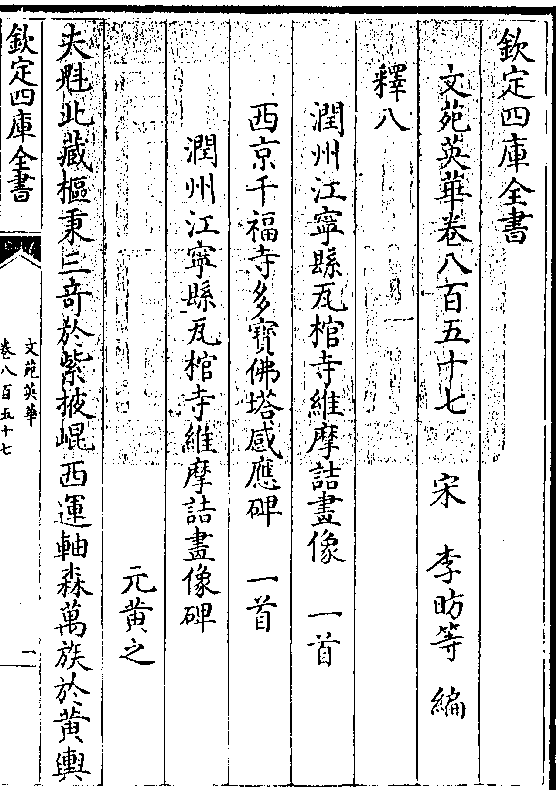 欽定四庫全書
文苑英華卷八百五十七　宋　李昉等　編
釋八
潤州江寧縣瓦棺寺維摩詰畫像　一首
西京千福寺多寶佛塔感應碑　一首
潤州江寧縣瓦棺寺維摩詰畫像碑
元黄之
夫魁此藏樞秉三竒於紫掖崐西運軸森萬族於黄輿
欽定四庫全書
文苑英華
卷八百五十七
一